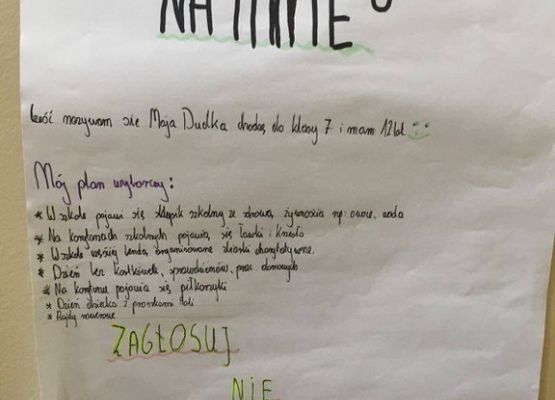 NA MNIE
Cześć nazywam się Maja Dudka chodzę do klasy 7 i mam 12 lat
Mój plan wyborczy:
* W szkole pojawi się sklepik szkolny ze zdrową żywnością np: owoce, woda
* Na korytarzach szkolnych pojawią się ławki i krzesła
* W szkole częściej będą organizowane zbiórki charytatywne.
* Dzień bez kartkówek, sprawdzianów, prac domowych
* Na korytarzu pojawią się piłkarzyki
* Dzień dziecka z proszkami Holi
* Rajdy rowerowe
ZAGŁOSUJ
NIE